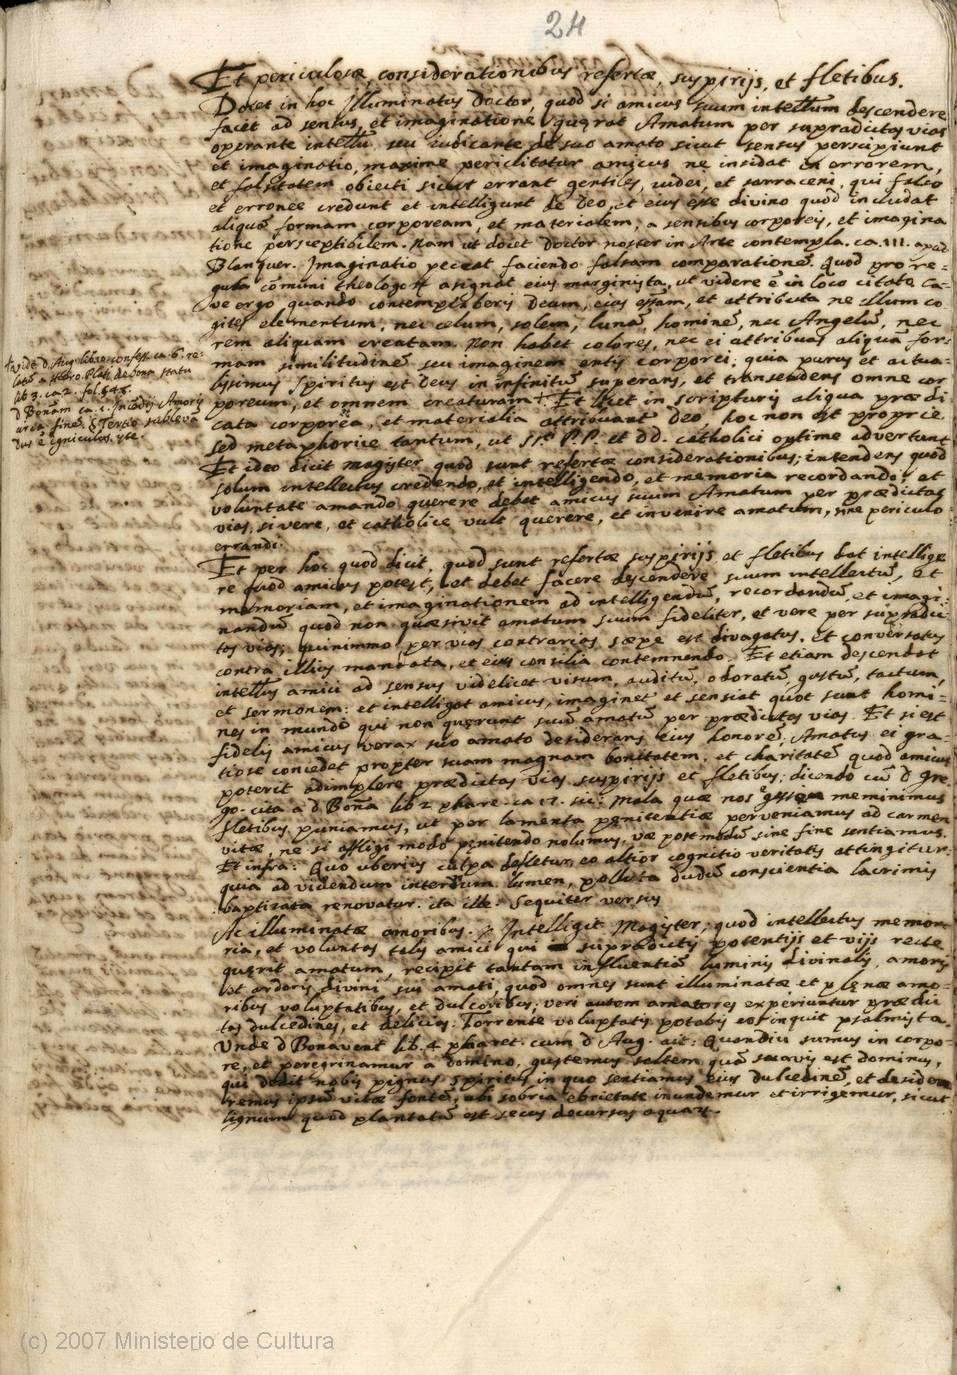 24
Et periculosæ, considerationibus refertæ, suspirijs, et fletibus.
Docet in hoc Illuminatus Doctor, quod si amicus suum intellm̃ descendere
facit ad sensus, et imaginatione quęrat Amatum per supradictas vias
operante intellũ, seu iudicante de suo amato sicut sensus perscipiunt
et imaginatio, maxime periclitatur amicus ne insidat in errorem,
et falsitatem obiecti sicut errant gentiles, iudei, et sarraceni, qui falso
et erronee credunt et intelligunt de Deo, et eius esse divino quod includat
aliquã formam corpoream, et materialem, a sensibus corporeis, et imagina
tione perseptibilem. Nam ut docet Doctor noster in Arte contempla. ca. III. apud
Blanquer. Imaginatio peccat faciendo falsam comparationẽ. Quod pro re-
gula cõmuni theologoꝝ asignat eius marginista, ut videre ẽ in loco citate Ca-
ve ergo quando contemplaberis Deum, eius essam, et attributa ne illum co
gites elementum, nec celum, solem, lunã, hominẽ, nec Angelũ, nec
rem aliquam creatam. Non habet colores, nec ei attribuas aliquã for-
mam similitudinẽ seu imaginem entis corporei; quia purus et actua-
lissimus spiritus est Deus in infinitũ superans, et transendens omne cor
poreum, et omnem creaturam + Et licet in scripturis aliqua prædi
cata corporea, et materialia attribuant Deo, hoc non est proprie
sed metaphorice tantum, ut SS. P.P. et DD. catholici optime advertunt
Et ideo dicit magister quod sunt refertæ considerationibus; intendens quod
solum intellectus credendo, et intelligendo, et memoria recordando, et
voluntate amando querere debet amicus suum Amatum per prædictas
vias, si vere, et catholice vult querere, et invenire amatum, sine periculo
errandi.
Et per hoc quod dicit, quod sunt refertæ suspirijs et fletibus dat intellige
re quod amicus potest, et debet facere descendere suum intellectũ, et
memoriam, et imaginationem ad intelligendũ, recordandũ, et imagi-
nandũ quod non quæsivit amatum suum fideliter, et vere per supradic
tas vias; quinimmo per vias contrarias sæpe est divagatus, et conversatus
contra illius mandata, et eius consilia contemnendo. Et etiam descendat
intellus amici ad sensus videlicet visum, auditũ, odoratũ, gustũ, tactum,
et sermonem: et intelligat amicus, imaginet et sensiat quot sunt homi-
nes in mundo qui non quęrunt suũ amatũ per prædictas vias. Et si est
fidelis amicus verax suo amato desiderans eius honorẽ, Amatus ei gra-
tiose concedet propter suam magnam bonitatem, et charitatẽ quod amicus
poterit adimplere prædictas vias suspirijs et fletibus; dicendo cũ D Gre
go. cita a D Bona lib 2 phare. ca 12. sic. Mala quæ nos meminimus
fletibus puniamus, ut per lamenta pęnitentiæ perveniamus ad carmen
vitæ, ne si affligi modo pęnitendo nolumus, væ postmodũ sine fine sentiamus.
Et infra: Quo uberius culpa defletur, eo altior cognitio veritatis attingitur.
quia ad videndum internum lumen, polluta dudũ conscientia lacrimis
baptizata renovatur. ita ille. Sequiter versus
Ac illuminatæ amoribus. Intelligit Magister, quod intellectus memor-
ria, et voluntas talis amici qui supradictis potentijs et vijs recte
quęrit amatum, recipit tantam influentiã luminis divinalis, amoris
et ardoris divini sui amati, quod omnes sunt illuminatæ et plęnæ amo-
ribus voluptatibus, et dulcoribus; veri autem amatores experiuntur prædic
tas dulcedines, et delicias. Torrente voluptatis potabis eos inquit psalmista.
Unde D Bonavent lib. 4 pharet. cum D Aug. ait: Quandiu sumus in corpo-
re, et peregrinamur a domino, gustemus saltem quã suavis est dominus,
qui dedit nobis pignus spiritus, in quo sentiamus eius dulcedinẽ, et deside
remus ipsũ vitæ fontẽ, ubi sobria ebrietate inundemur et irrigemur, sicut
lignum quod plantatũ est secus decursus aquaꝝ.
+ vide D. Aug. libro confess. ca. 6. re-
latũ a Hero. Plati. de bona statu
lib 3. ca 2. fol. 545.
D Bonam ca. 1. Incendij Amoris
circa finẽ. § Tertio sublevã
dus ẽ igniculus, &te.
(c) 2007 Ministerio de Cultura